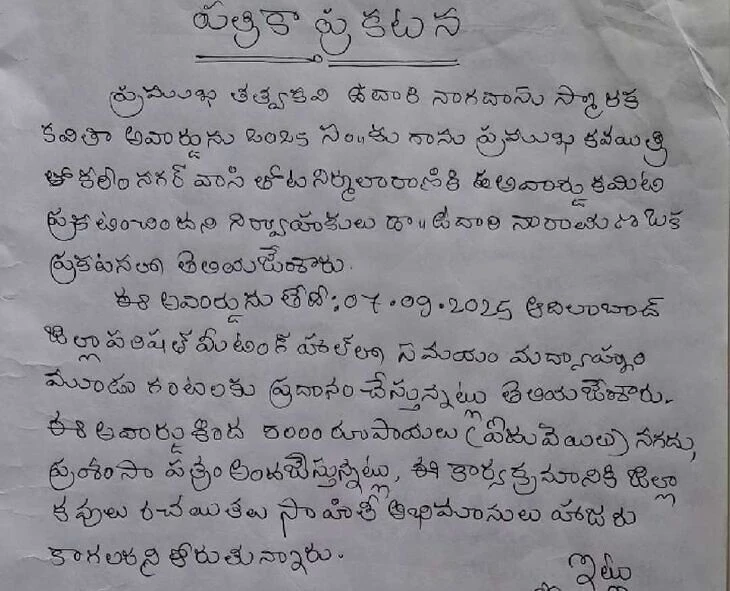 పత్రికా ప్రకటన
ప్రముఖ తత్వకవి ఉదారి నాగదాసు స్మారక
కవితా అవార్డును 2025 సం॥కు గాను ప్రముఖ కవయిత్రి
కరీంనగర్ వాసి తోట నిర్మలారాణికి ఈ అవార్డు కమిటి
ప్రకటించిందని నిర్వాహకులు డా॥ ఉదారి నారాయణ ఒక
ప్రకటనలో తెలియజేశారు.
ఈ అవార్డును తేదీ: 07.09.2025 ఆదిలాబాద్
జిల్లా పరిషత్ మీటింగ్ హాల్‌లో సమయం మధ్యాహ్నం
మూడు గంటలకు ప్రదానం చేస్తున్నట్లు తెలియజేశారు.
ఈ అవార్డు క్రింద 5000 రూపాయలు (ఐదు వెయిలు) నగదు,
ప్రశంసా పత్రం అందజేస్తున్నట్లు, ఈ కార్యక్రమానికి జిల్లా
కవులు రచయితలు సాహితీ అభిమానులు హాజరు
కాగలరని కోరుతున్నారు.
ఇట్లు